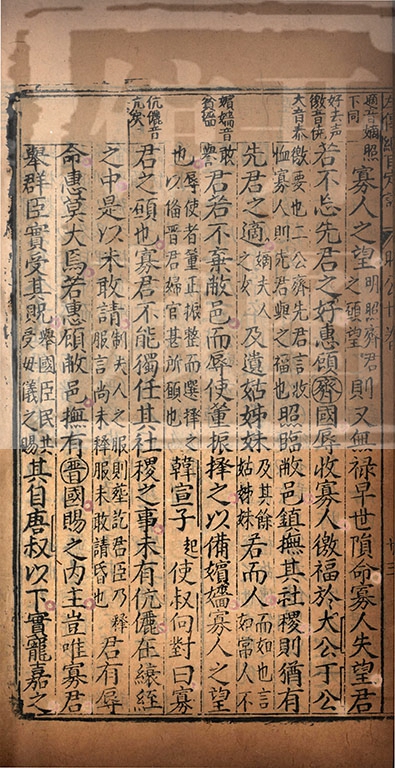 適音嫡照下同
好去声
徼音僥
大音泰
寡人之望明照齊君之願望則又無祿早世隕命寡人失望君
若不忘先君之好惠顧齊國辱收寡人徼福於大公丁公
徼要也二公齊先君言收恤寡人則先君與之福也照臨敝邑鎮撫其社稷則猶有
先君之適嫡夫人之女及遺姑姊妹及其餘姑姊妹若而人而如也言如常人不
嬪嬙音貧墻
敢譽君若不棄敝邑而辱使董振擇之以備嬪嬙寡人之望
也辱使者董正振整而選擇之以備晉君嬪官甚所願也韓宣子起使叔向對曰寡
伉儷音亢戾
君之願也寡君不能獨任其社稷之事未有伉儷在縗絰
之中是以未敢請制夫人之服則葬訖君臣乃釋服言尚未釋服未敢請昏也君有辱
命惠莫大焉若惠顧敝邑撫有晉國賜之內主豈唯寡君
舉群臣實受其貺舉國臣民共受母儀之賜其自唐叔以下實寵嘉之